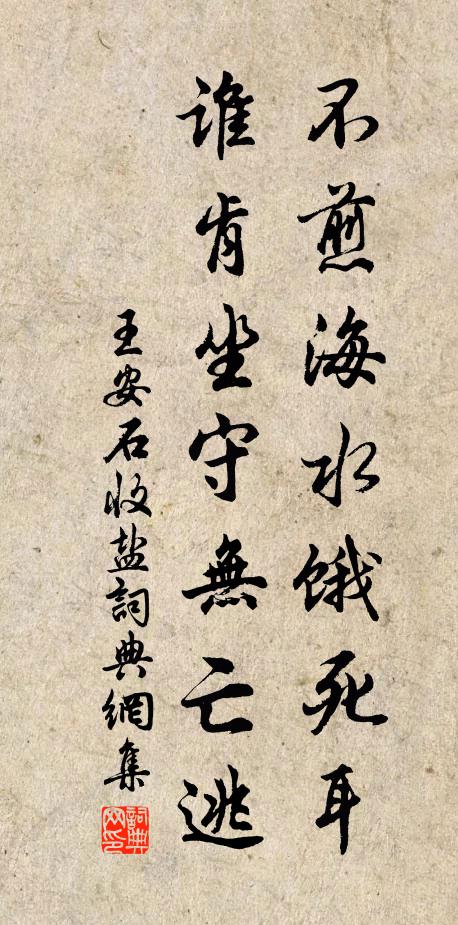 不煎海水餓死耳
誰肯坐守無亡逃
王安石收盐詞典網集
詞典网印